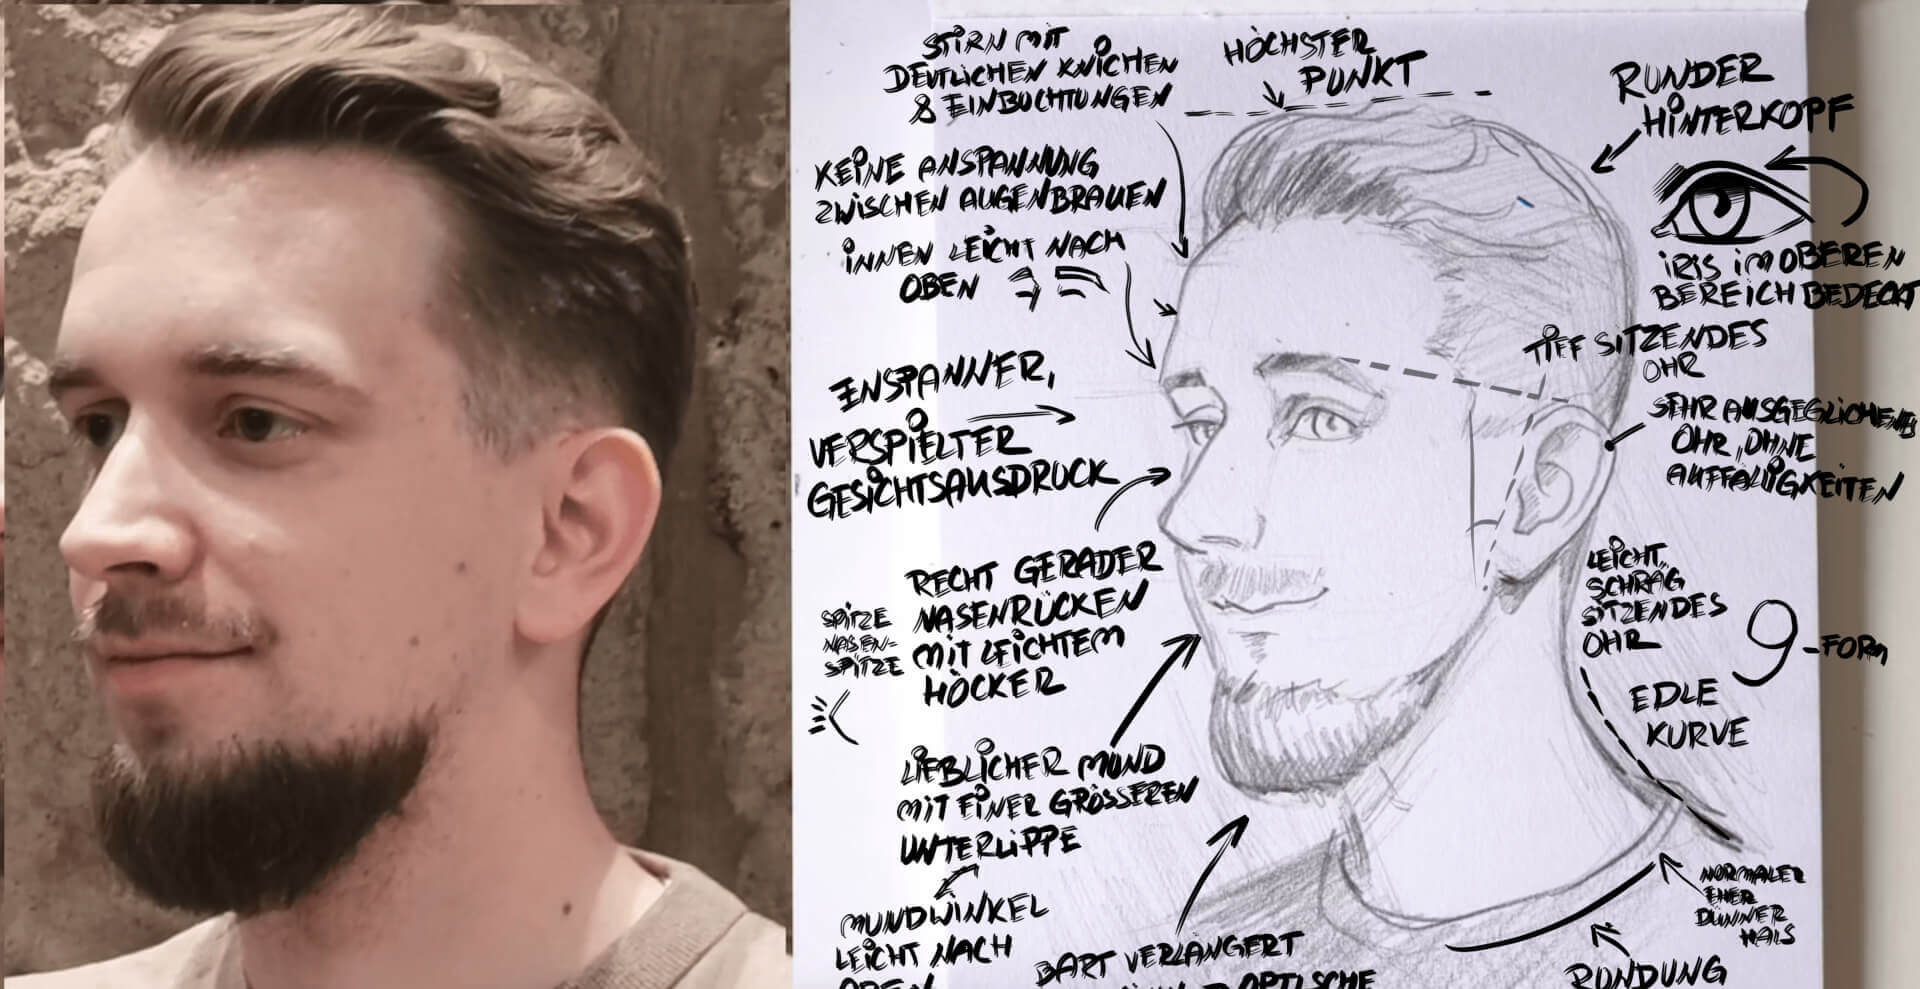 STIRN MIT
DEUTLICHEN KNICHEN
& EINBUCHTUNGEN
HÖCHSTER
PUNKT
RUNDER
HINTERKOPF
KEINE ANSPANNUNG
ZWISCHEN AUGENBRAUEN
INNEN LEICHT NACH
OBEN
IRIS IM OBEREN
BEREICH BEDECKT
TIEF SITZENDES
OHR
ENSPANNER,
VERSPIELTER
GESICHTSAUSDRUCK
SEHR AUSGEGLICHENES
OHR, OHNE
AUFFÄLLIGKEITEN
RECHT GERADER
NASENRÜCKEN
MIT LEICHTEM
HÖCKER
SPITZE
NASEN-
SPITZE
LEICHT
SCHRÄG
SITZENDES
OHR
9-FORM
EDLE
KURVE
LIEBLICHER MUND
MIT EINER GRÖSSEREN
UNTERLIPPE
MUNDWINKEL
LEICHT NACH
OBEN
BART VERLÄNGERT
OPTISCHE
NORMALER
EHER
DÜNNER
HALS
RUNDUNG